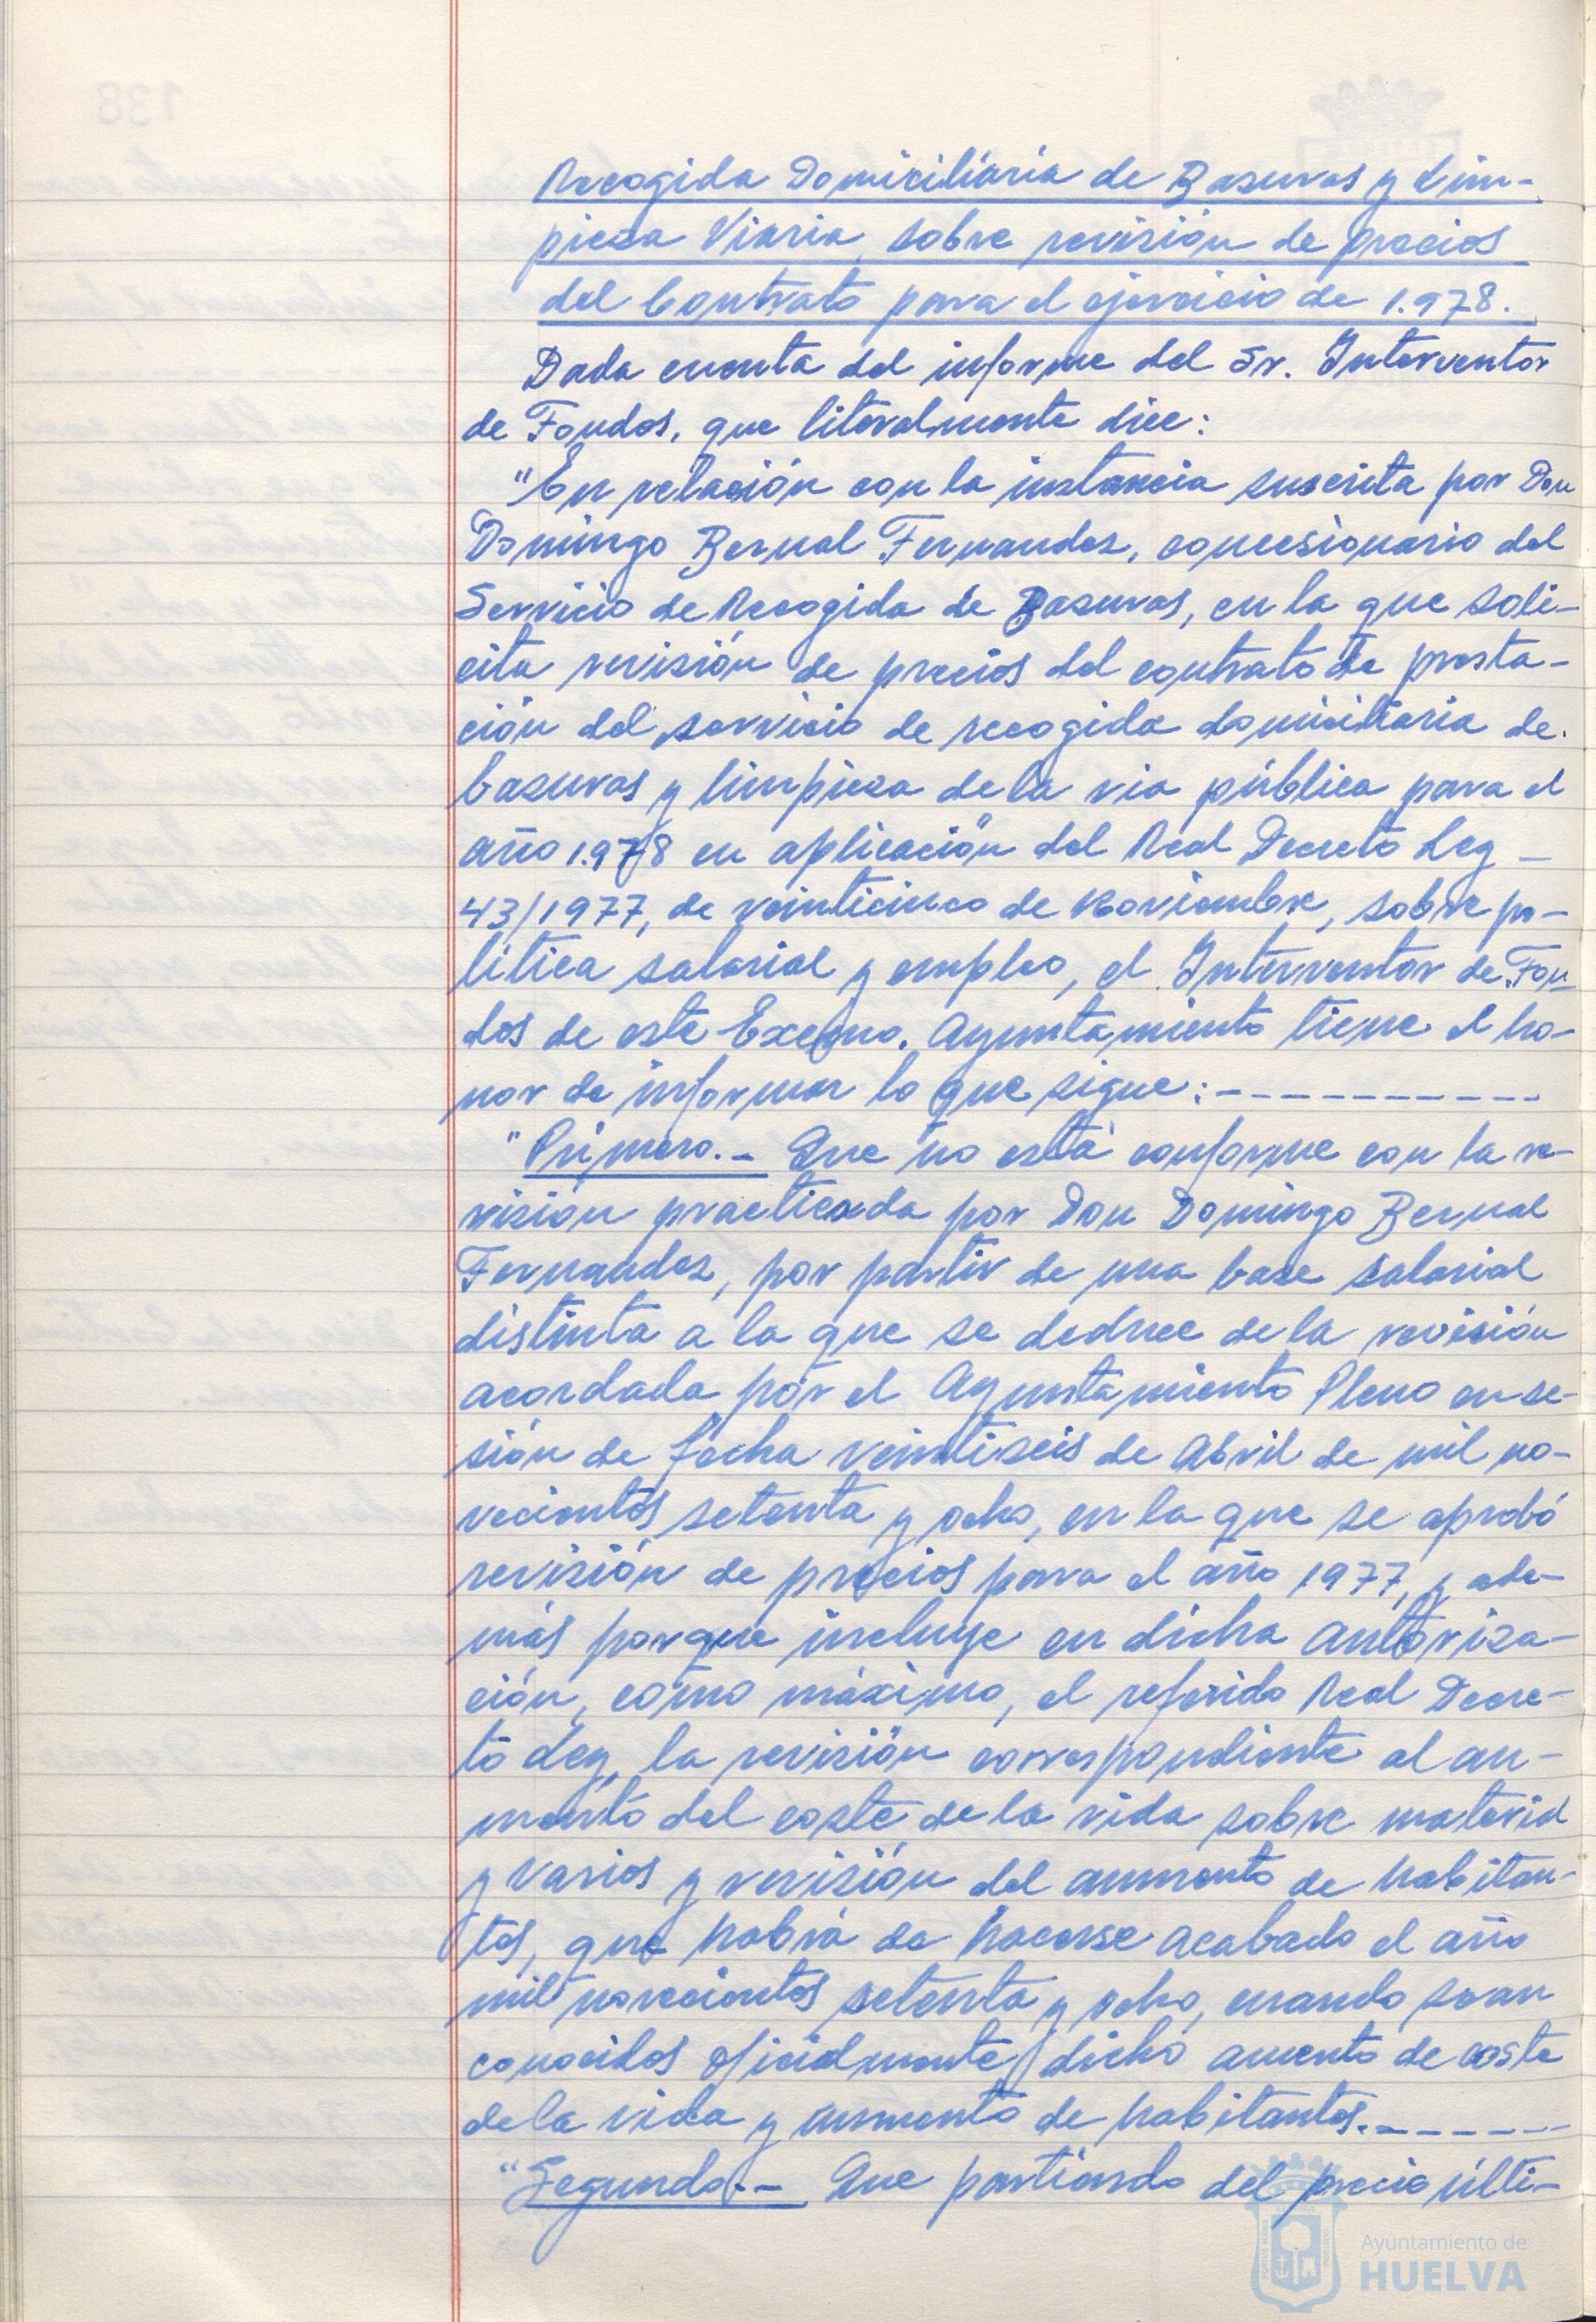 Recogida Domiciliaria de Basuras y Lim-
pieza Viaria, sobre revisión de precios
del Contrato para el ejercicio de 1.978.
Dada cuenta del informe del Sr. Interventor
de Fondos, que literalmente dice:
"En relación con la instancia suscrita por Don
Domingo Bernal Fernandez, concesionario del
Servicio de Recogida de Basuras, en la que soli-
cita revisión de precios del contrato de presta-
ción del servicio de recogida domiciliaria de
basuras y limpieza de la via pública para el
año 1.978 en aplicación del Real Decreto Ley -
43/1977, de veinticinco de Noviembre, sobre po-
lítica salarial y empleo, el Interventor de Fon-
dos de este Excmo. Ayuntamiento tiene el ho-
nor de informar lo que sigue:-----------
"Primero.- Que no está conforme con la re-
visión practicada por Don Domingo Bernal
Fernandez, por partir de una base salarial
distinta a la que se deduce de la revisión
acordada por el Ayuntamiento Pleno en se-
sión de fecha veintiseis de Abril de mil no-
vecientos setenta y ocho, en la que se aprobó
revisión de precios para el año 1977, y ade-
más porque incluye en dicha autoriza-
ción, como máximo, el referido Real Decre-
to Ley, la revisión correspondiente al au-
mento del coste de la vida sobre material
y varios y revisión del aumento de habitan-
tes, que habrá de hacerse acabado el año
mil novecientos setenta y ocho, cuando sean
conocidos oficialmente dicho amento de coste
de la vida y aumento de habitantes.-------
"Segundo.- Que partiendo del precio últi-
Ayuntamiento de
HUELVA